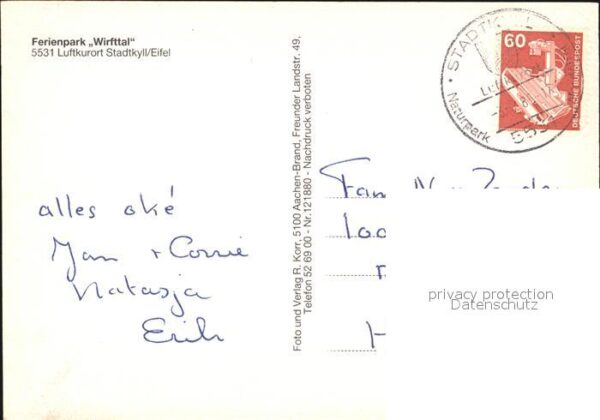 Ferienpark „Wirfttal"
5531 Luftkurort Stadtkyll/Eifel
alles oké
Jan + Corrie
Natasja
Erik
Foto und Verlag R. Korr, 5100 Aachen-Brand, Freunder Landstr. 49.
Telefon 52 69 00 - Nr. 121880 - Nachdruck verboten
STADTKYLL
Naturpark
60
DEUTSCHE BUNDESPOST
Fam
privacy protection
Datenschutz